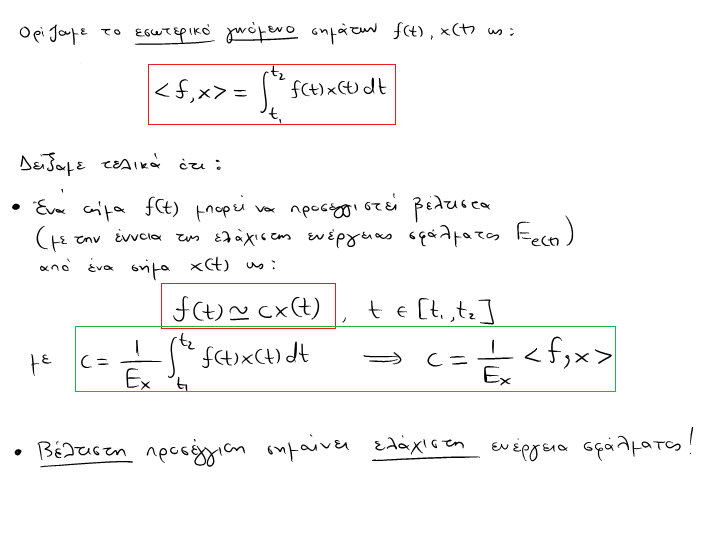 Ορίσαμε το εσωτερικό γινόμενο σημάτων f(t), x(t) ως:
<f,x> = ∫_{t₁}^{t₂} f(t)x(t)dt
Δείξαμε τελικά ότι:
• Ένα σήμα f(t) μπορεί να προσεγγιστεί βέλτιστα
(με την έννοια της ελάχιστης ενέργειας σφάλματος E_{e(t)})
από ένα σήμα x(t) ως:
f(t) ≃ cx(t), t ∈ [t₁,t₂]
με c = 1/Eₓ ∫_{t₁}^{t₂} f(t)x(t)dt ⟹ c = 1/Eₓ <f,x>
• Βέλτιστη προσέγγιση σημαίνει ελάχιστη ενέργεια σφάλματος!